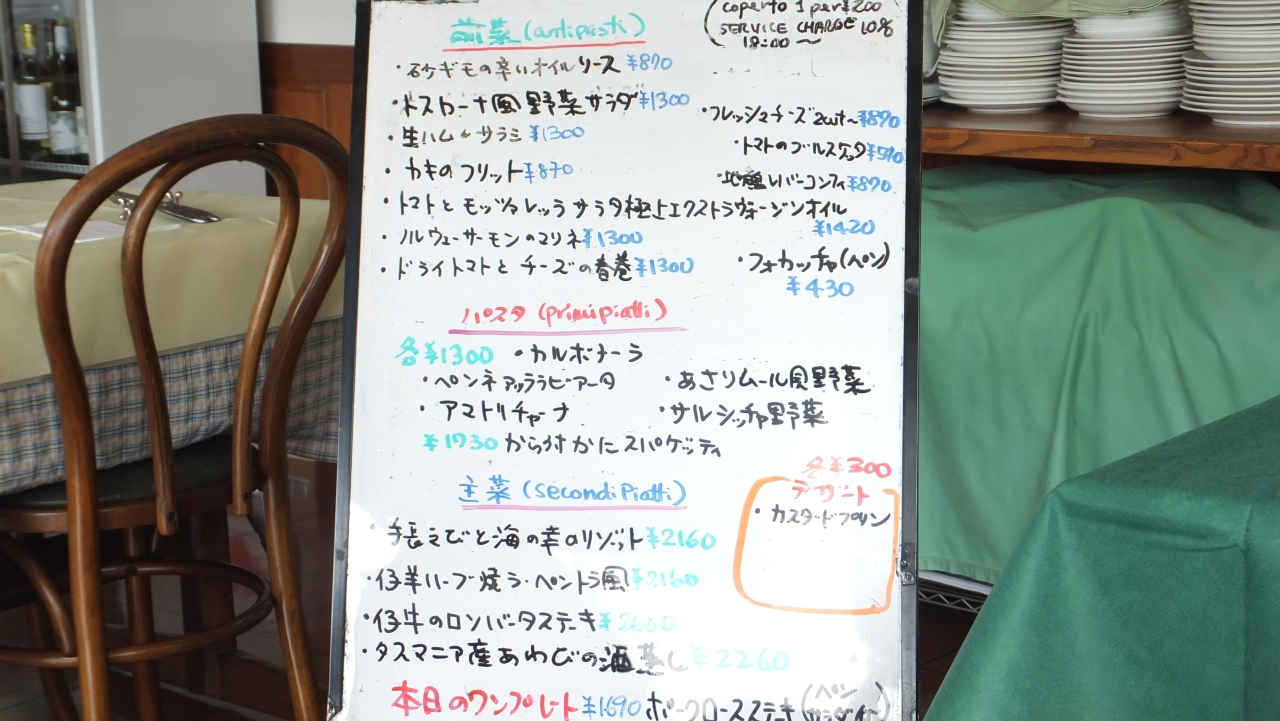 前菜 (antipasti)
(coperto 1 per ¥200
SERVICE CHARGE 10%
18:00〜
・砂ギモの辛いオイルソース ¥870
・トスカーナ風野菜サラダ ¥1300
・生ハムとサラミ ¥1300
・カキのフリット ¥870
・フレッシュチーズ 2cut〜 ¥890
・トマトのブルスケッタ ¥590
・地鶏レバーコンフィ ¥890
・トマトとモッツァレッラサラダ極上エクストラヴァージンオイル
¥1420
・ノルウェーサーモンのマリネ ¥1300
・ドライトマトとチーズの春巻 ¥1300
・フォカッチャ(パン)
¥430
パスタ (primi piatti)
各¥1300 ・カルボナーラ
・ペンネアッラビアータ ・あさりムール貝野菜
・アマトリチャーナ ・サルシッチャ野菜
¥1730 から付かにスパゲッティ
主菜 (secondi Piatti)
・手長えびと海の幸のリゾット ¥2160
・仔羊ハーブ焼ラ・ペントラ風 ¥2160
・仔牛のロンバータステーキ
・タスマニア産あわびの酒蒸し ¥2260
各¥300
デザート
・カスタードプリン
本日のワンプレート ¥1690 ポークロースステーキ (パン